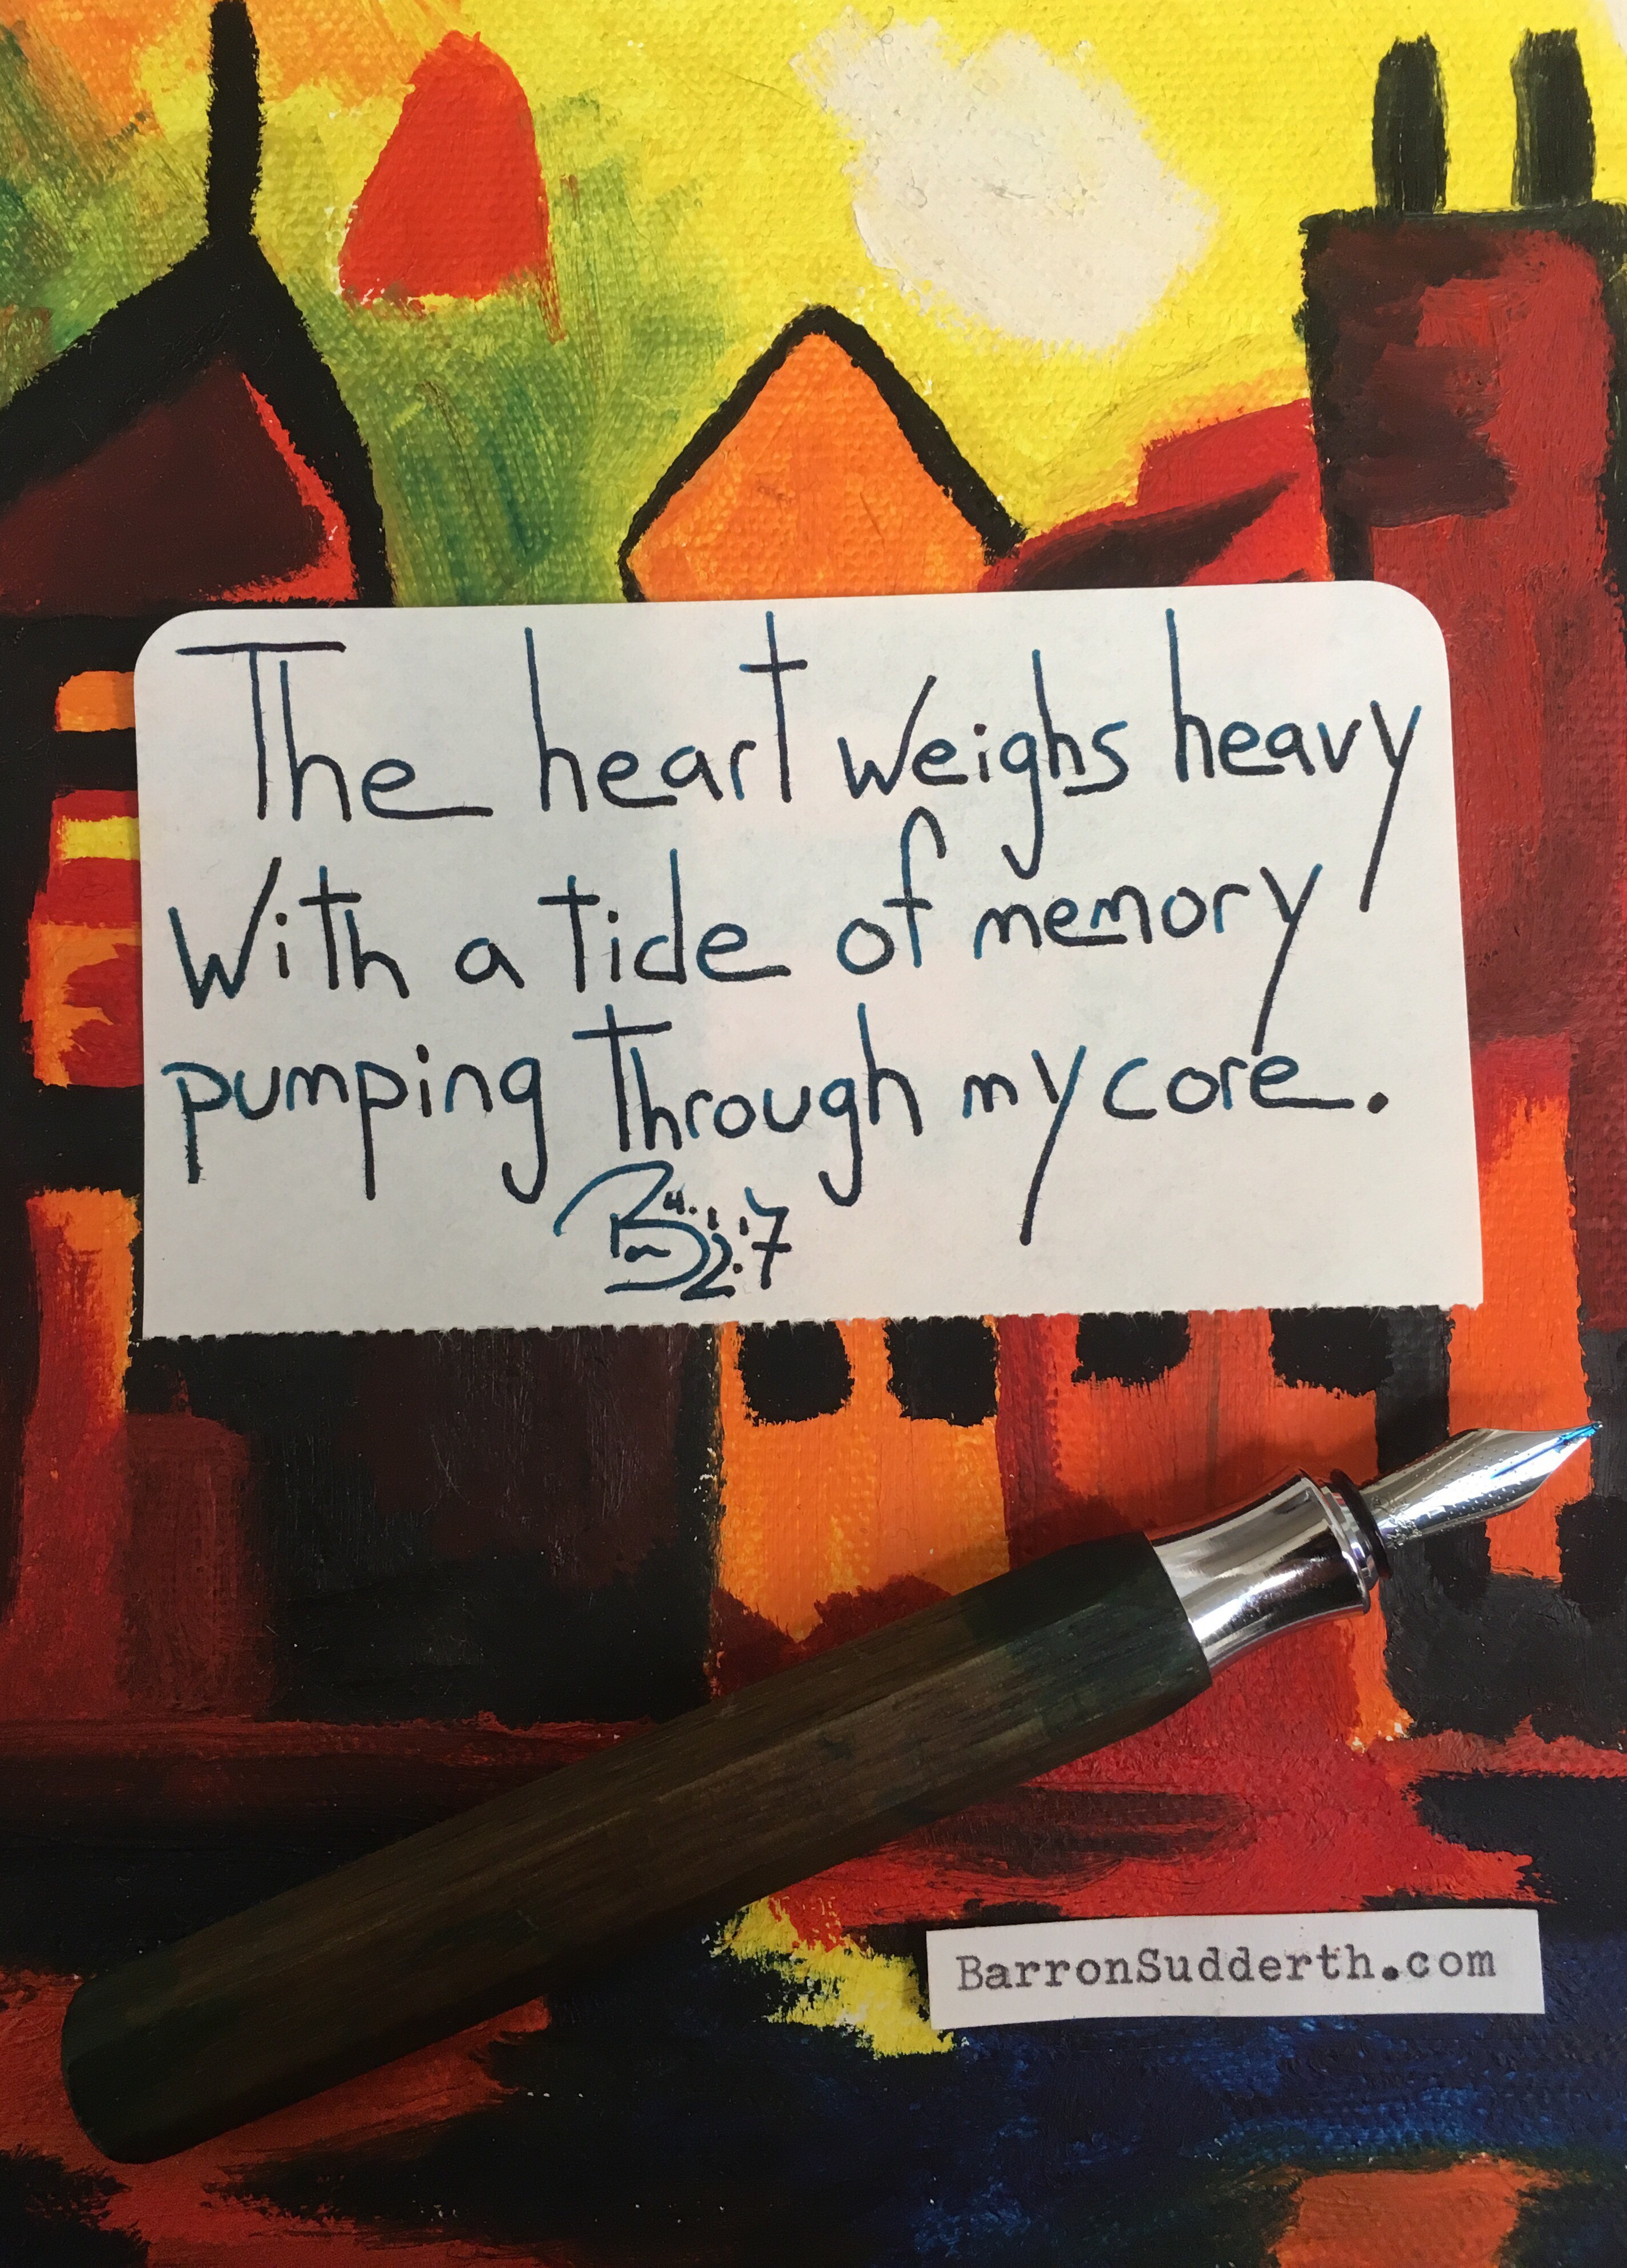 The heart weighs heavy
With a tide of memory
pumping through my core.
BarronSudderth.com